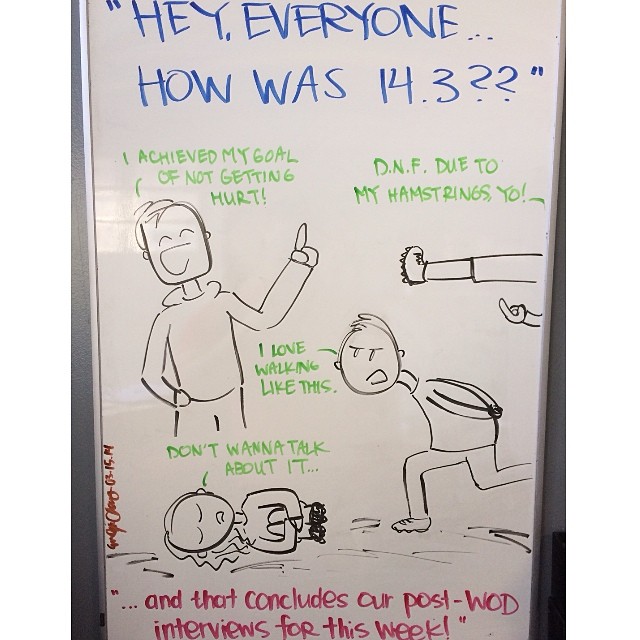 "HEY, EVERYONE...
HOW WAS 14.3??"
I ACHIEVED MY GOAL
OF NOT GETTING
HURT!
D.N.F. DUE TO
MY HAMSTRINGS, YO!
I LOVE
WALKING
LIKE THIS.
DON'T WANNA TALK
ABOUT IT...
03.15.14
"... and that concludes our post-WOD
interviews for this week!"